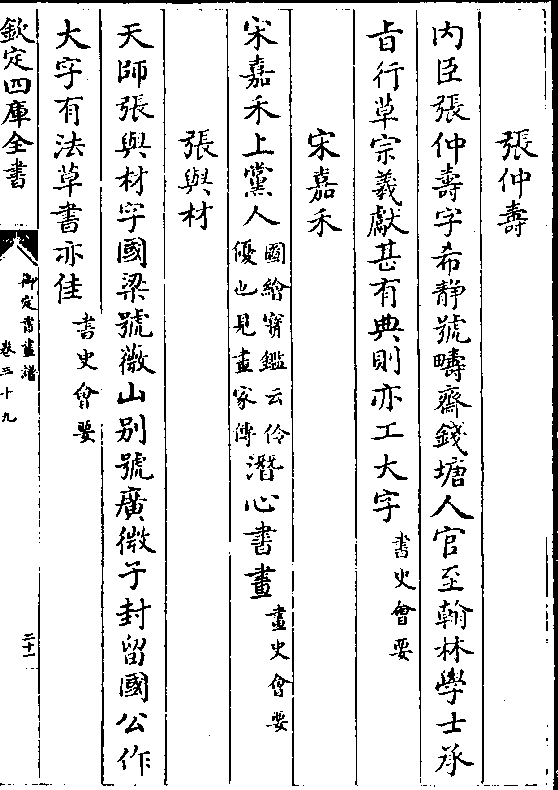 張仲壽
内臣張仲壽字希静號疇齋錢塘人官至翰林學士承
㫖行草宗羲獻甚有典則亦工大字書史㑹要
宋嘉禾
宋嘉禾上黨人圖繪寳鑑云伶優也見畫家傳潛心書畫畫史㑹要
張與材
天師張與材字國梁號薇山别號廣微子封留國公作
大字有法草書亦佳書史㑹要
欽定四庫全書
御定書畫譜
卷三十九
二十一